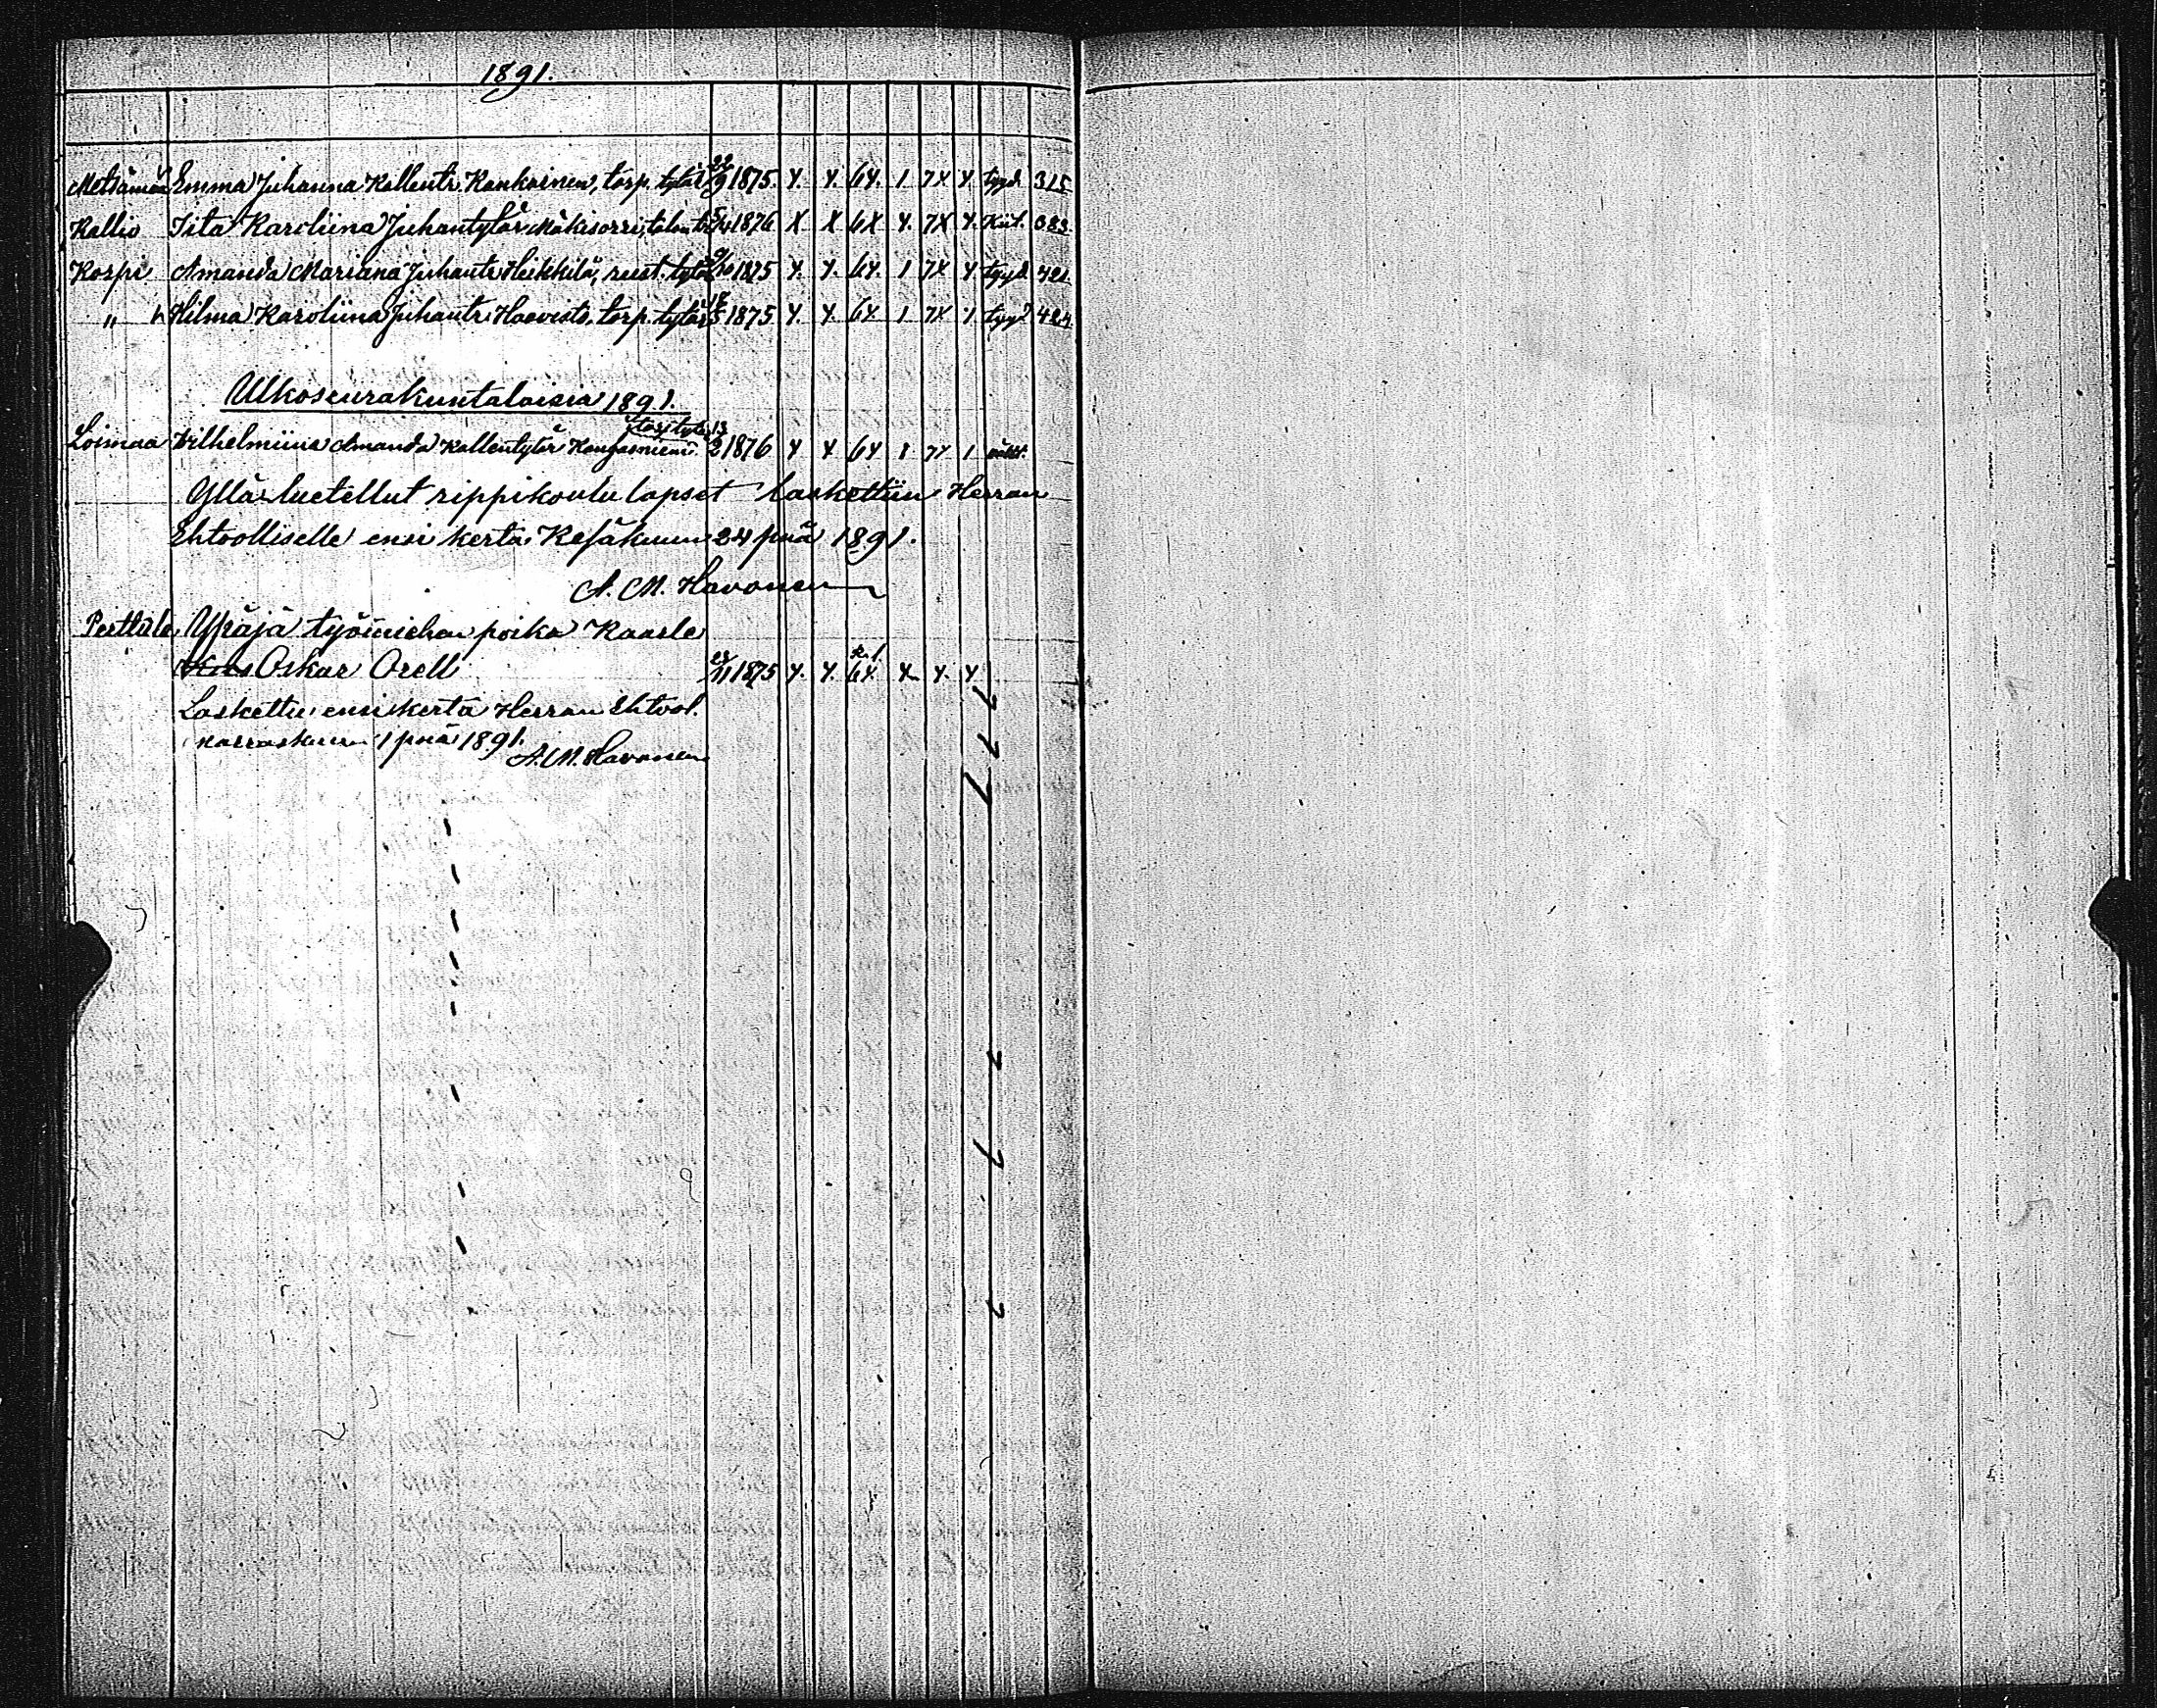 1891.
Metsämaa Emma Juhanna Kallentr. Kankainen, torp. tytär 22/9 1875. X. X. 6X. 1 7X X tyyd. 315
Kallio Iita Karoliina Juhantytär Mäkisorri, talon tr. 5/4 1876 X X 6X X. 7X X. Kiit. 383.
Korpi Amanda Mariana Juhantr. Heikkilä, rust. tytär /10 1875 X. X. 6X. 1 7X X tyyd. 421.
" Hilma Karoliina Juhantr. Haavisto, torp. tytär /5 1875 X. X. 6X 1 7X 1 tyyd 424
Ulkoseurakuntalaisia 1891.
torp. tytär
Loimaa Vilhelmiina Amanda Kallentytär Kangasniemi. 13/2 1876 X X 6X 1 7X 1 vältt.
Yllä luetellut rippikoulu lapset laskettiin Herran
Ehtoolliselle ensi kerta Kesäkuun 24 pnä 1891.
A. M. Havonen
Perttula Ypäjä työmiehen poika Kaarle
Oskar Orell /11 1875 X. X. 6X. X X. X
Laskettu ensi kerta Herran Ehtool.
Marraskuun 1 pnä 1891.
A. M. Havonen